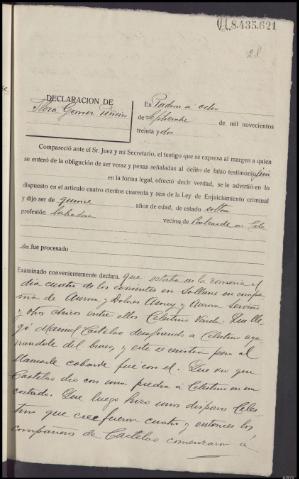 8.435.621
28
DECLARACION DE
En Padron a ocho
de Septiembre de mil novecientos
treinta y dos
Compareció ante el Sr. Juez y mi Secretario, el testigo que se expresa al margen a quien
se enteró de la obligación de ser veraz y penas señaladas al delito de falso testimonio
en la forma legal, ofreció decir verdad, se le advirtió en lo
dispuesto en el artículo cuatrocientos cuarenta y seis de la Ley de Enjuiciamiento criminal
y dijo ser de quince años de edad, de estado
profesión labradora vecina de
fue procesado
Examinado convenientemente declara, que estaba en la romeria el
día cuatro de los corrientes en en compa
y otros chicos entre ellos Celestino Que lle
gó Manuel Castelao a Celestino aga
rrandole del brazo y este al
llamarle cobarde fue con el. Que vio que
Castelao dio con una piedra a Celestino en un
costado. Que luego hizo unos disparos Celes
tino que cree fueron cuatro y entonces los
compañeros de Castelao comenzaron á